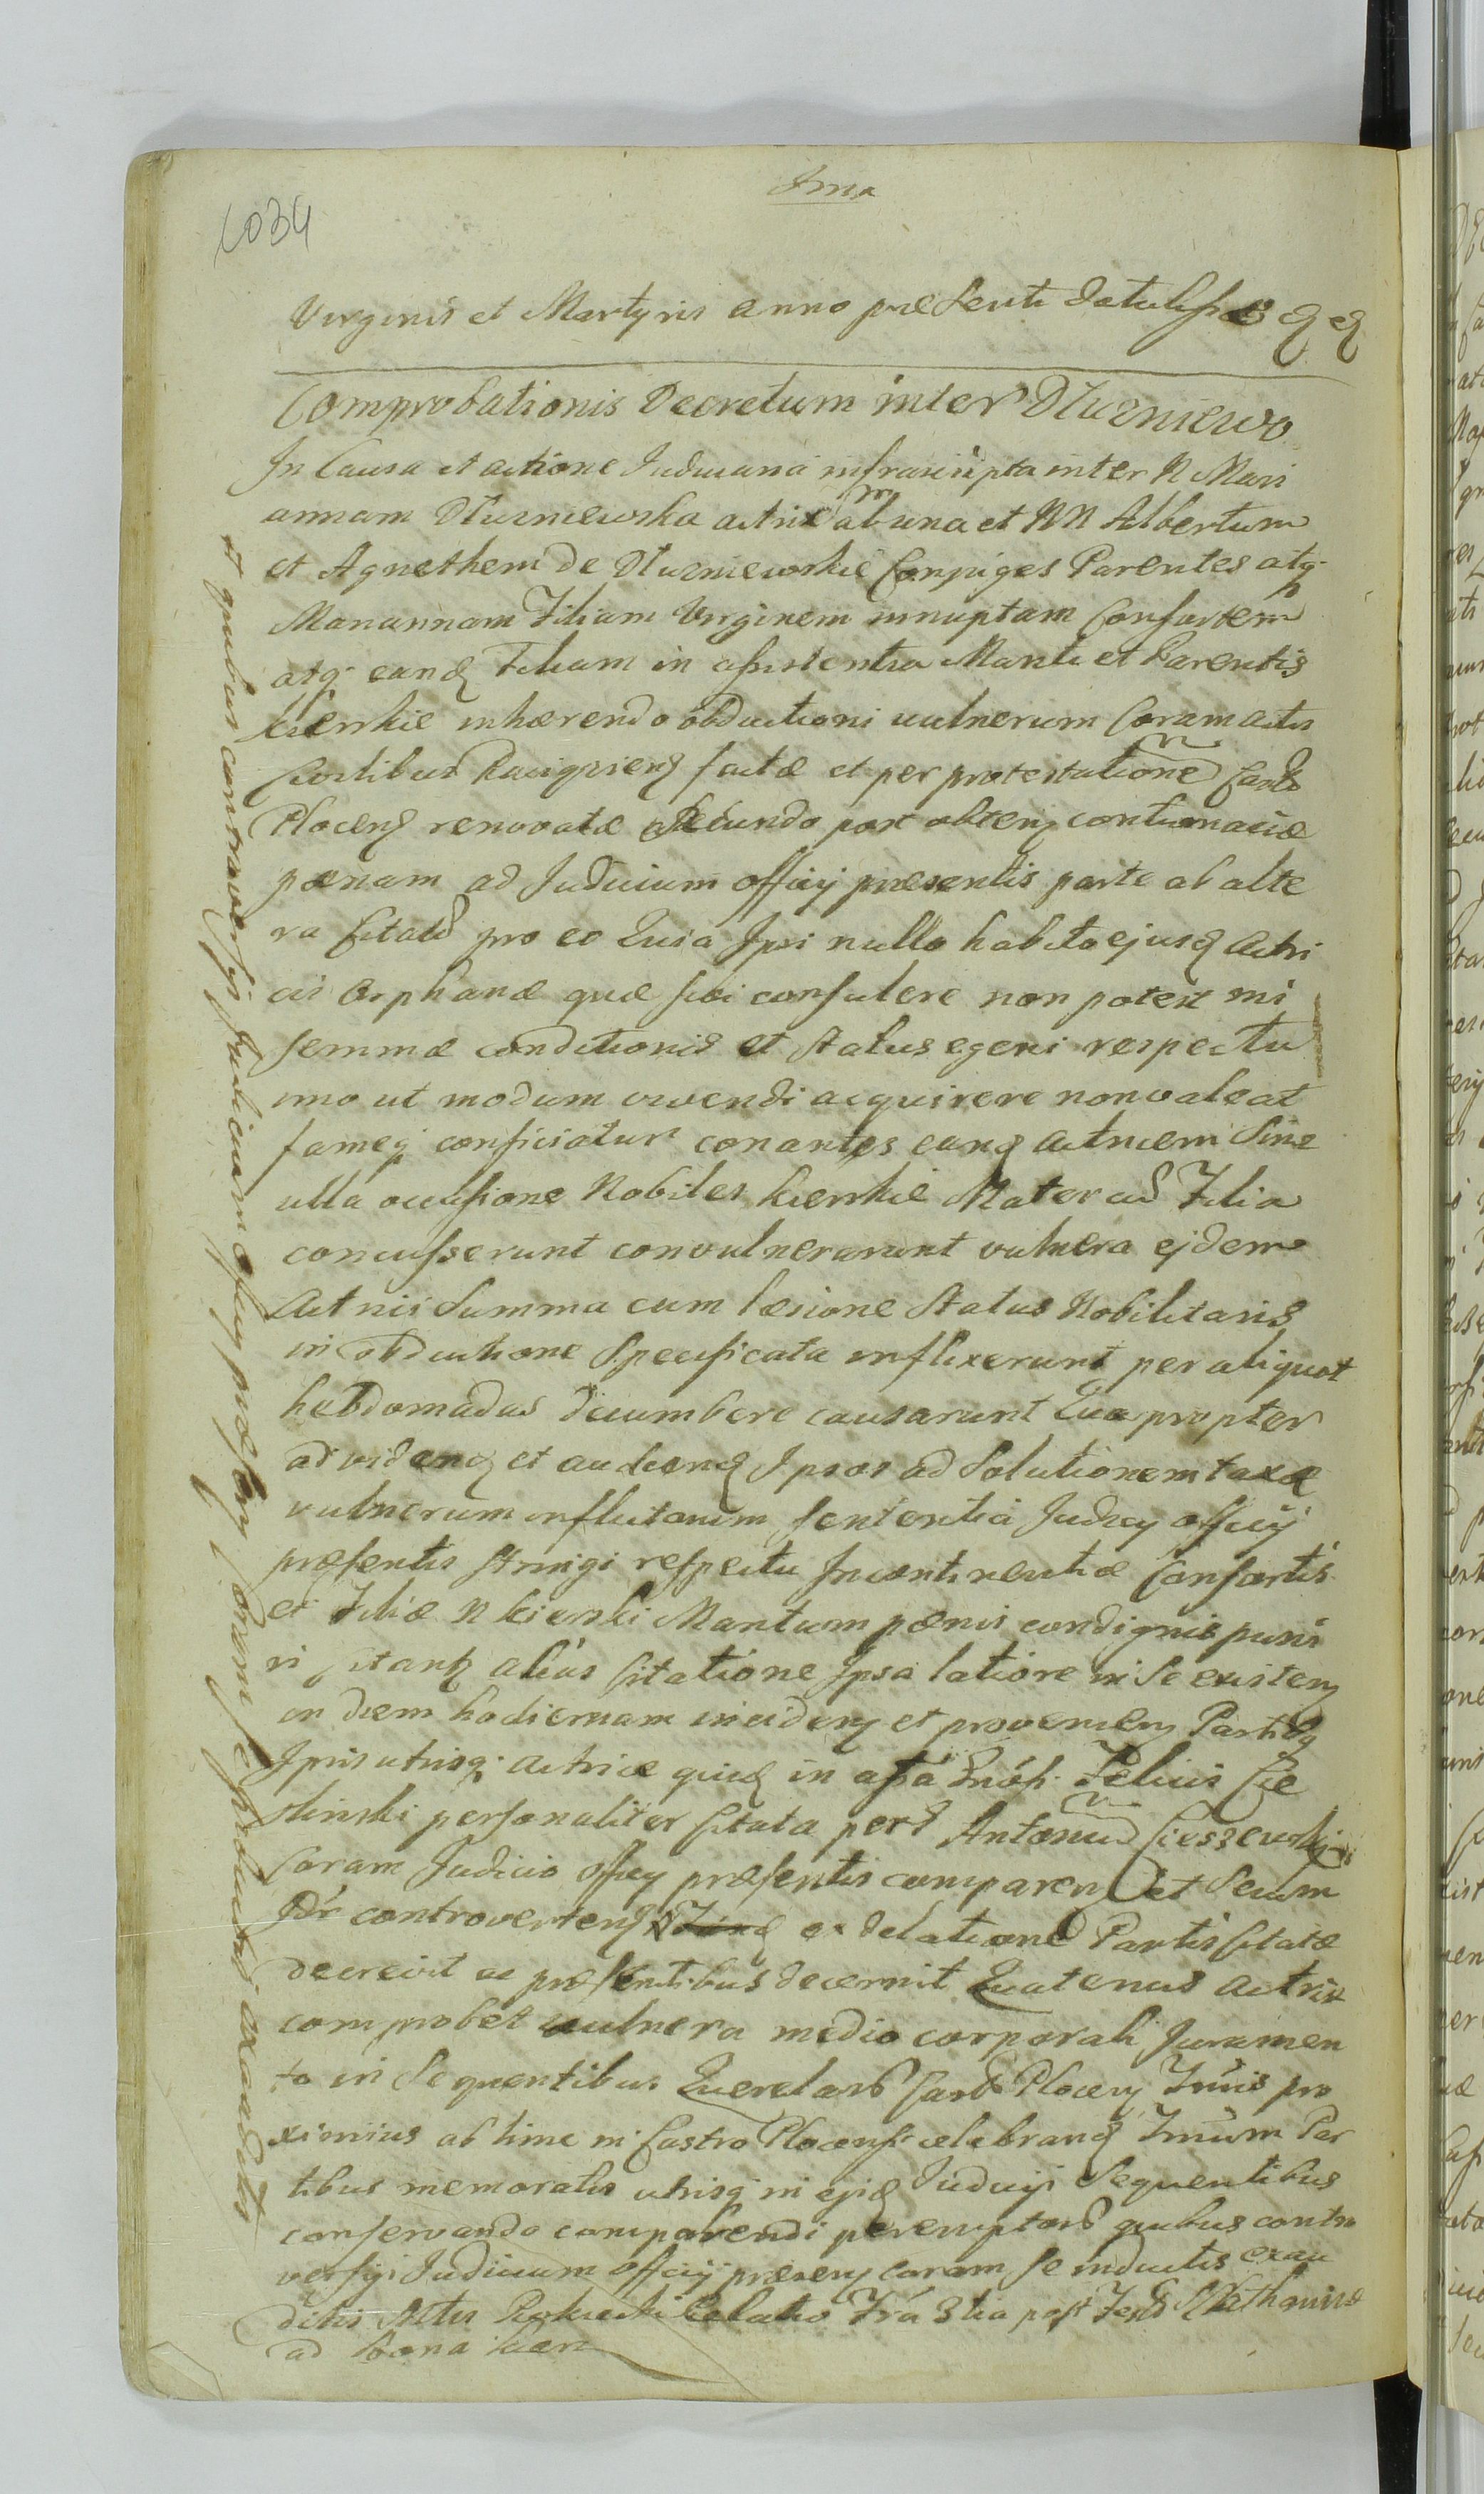 Ima
1034
Virginis et Martyris anno præsenti
Comprobationis Decretum inter Dłuzniewo
In Causa et actione Judiciaria infrascripta inter N Mari
annam Dłuzniewska actricem ab una et NN Albertum
et Agnethem de Dłuzniewskie Conjuges Parentes atq
Mariannam Filiam Virginem innuptam Consortem
atq eand Filiam in assistentia Mariti et Parentis
Kierskie inhærendo obductioni vulnerum Coram actis
Castribus Raciąziens factæ et per protestationem Castr
Plocens renovatæ secundo post obtens contumaciæ
pœnam ad Judicium officij præsentis parte ab alte
ra Citatos pro eo Quia Ipsi nullo habito ejusd Actri
cis Orphanæ quæ sibi consulere non potest mi
serrimæ conditionis et status egeni respectu
imo ut modum vivendi acquirere non valeat
fameq conficiatur conantes eand Actricem sine
ulla occasione Nobiles Kierskie Mater ac Filia
concusserunt convulnerarunt vulnera ejdem
Actrici summa cum læsione Status Nobilitaris
in obductione specificata inflixerunt per aliquot
hebdomadas decumbere causarunt Qua propter
ad vidend et audiend Ipsos ad solutionem taxæ
vulnerum inflictorum sententia Judicij officij
præsentis stringi respectu Incontinentiæ Consortis
et Filiæ N Kierski Maritum pœnis condignis puni
ri citant alias Citatione Ipsa latiore in se existens
in diem hodiernam incidens et proveniens Partibus
Ipsis utrisq Actrice quid in Felicis Cie
slinski personaliter Citata per Antonium Cieszewski
Coram Judicio officij præsentis comparens et secum
controvertens ex delatione Partis Citatæ
decrevit ac præsentibus decernit Quatenus Actrix
comprobet vulnera medio corporali Juramen
to in sequentibus Querelarum Castr Plocens Tminis pro
ximius ab hinc in Castro Plocensi celebrand Tminum Par
tibus memoratis utrisq in ejusd Judicij sequentibus
conservando comparendi peremptorium quibus contro
versijs Judicium officij præsens coram se inductis exau
ditis Relatio Fra 3tia post Festum S Catharinæ
ad bona
et quibus controversijs Judicium officij præsens coram se inductis exauditis